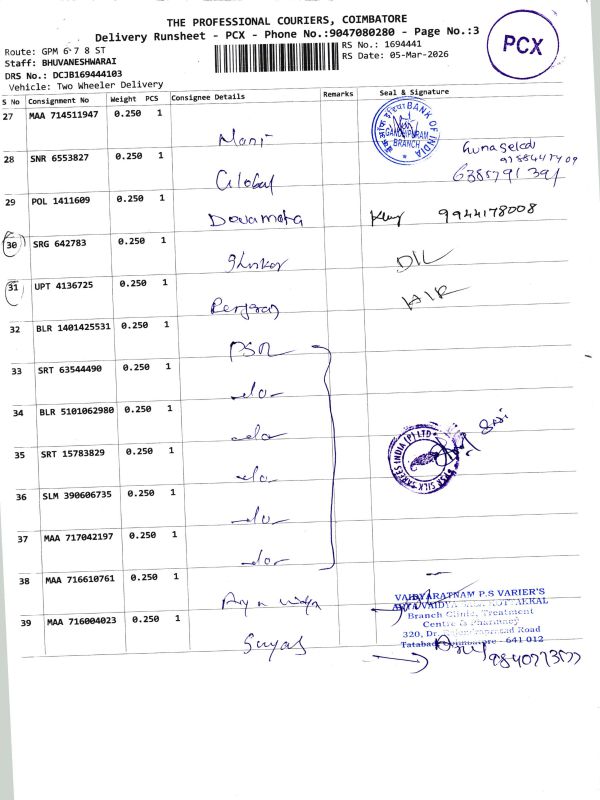 THE PROFESSIONAL COURIERS, COIMBATORE
Delivery Runsheet - PCX - Phone No.:9047080280 - Page No.:3
Route: GPM 6 7 8 ST
RS No.: 1694441
PCX
Staff: BHUVANESHWARAI
RS Date: 05-Mar-2026
DRS No.: DCJB169444103
Vehicle: Two Wheeler Delivery
S No Consignment No Weight PCS Consignee Details Remarks Seal & Signature
27 MAA 714511947 0.250 1
Mani
BANK OF INDIA
GANDHIPURAM
BRANCH
28 SNR 6553827 0.250 1
Global
29 POL 1411609 0.250 1
9944178008
30 SRG 642783 0.250 1
D/L
31 UPT 4136725 0.250 1
32 BLR 1401425531 0.250 1
PSR
33 SRT 63544490 0.250 1
-do-
34 BLR 5101062980 0.250 1
-do-
35 SRT 15783829 0.250 1
-do-
PSR SILK SAREES INDIA (P) LTD
36 SLM 390606735 0.250 1
-do-
37 MAA 717042197 0.250 1
-do-
38 MAA 716610761 0.250 1
Arya vaidya
VAIDYARATNAM P.S VARIER'S
ARYA VAIDYA SALA KOTTAKKAL
Branch Clinic, Treatment
Centre & Pharmacy
39 MAA 716004023 0.250 1
Suyas
320, Dr. Rajendraprasad Road
Tatabad, Coimbatore - 641 012